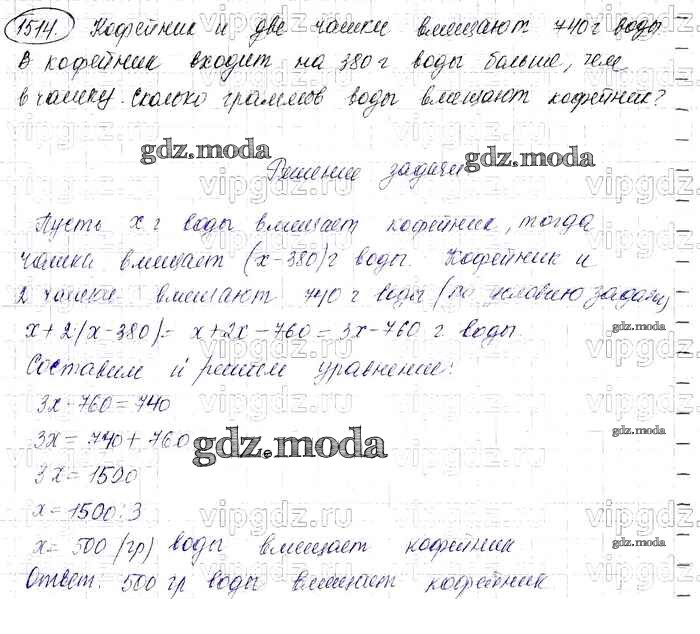 1514. Кофейник и две чашки вмещают 740 г воды.
В кофейник входит на 380 г воды больше, чем
в чашку. Сколько граммов воды вмещают кофейник?
gdz.moda
gdz.moda
Решение задачи
Пусть x г воды вмещает кофейник, тогда
чашка вмещает (x-380) г воды. Кофейник и
2 чашки вмещают 740 г воды (по условию задачи)
x+2(x-380)= x+2x-760=3x-760 г воды.
gdz.moda
Составим и решим уравнение:
3x-760=740
3x=740+760
gdz.moda
gdz.moda
3x=1500
x=1500:3
x=500 (гр) воды вмещает кофейник
gdz.moda
Ответ: 500 гр воды вмещает кофейник
vipgdz.ru